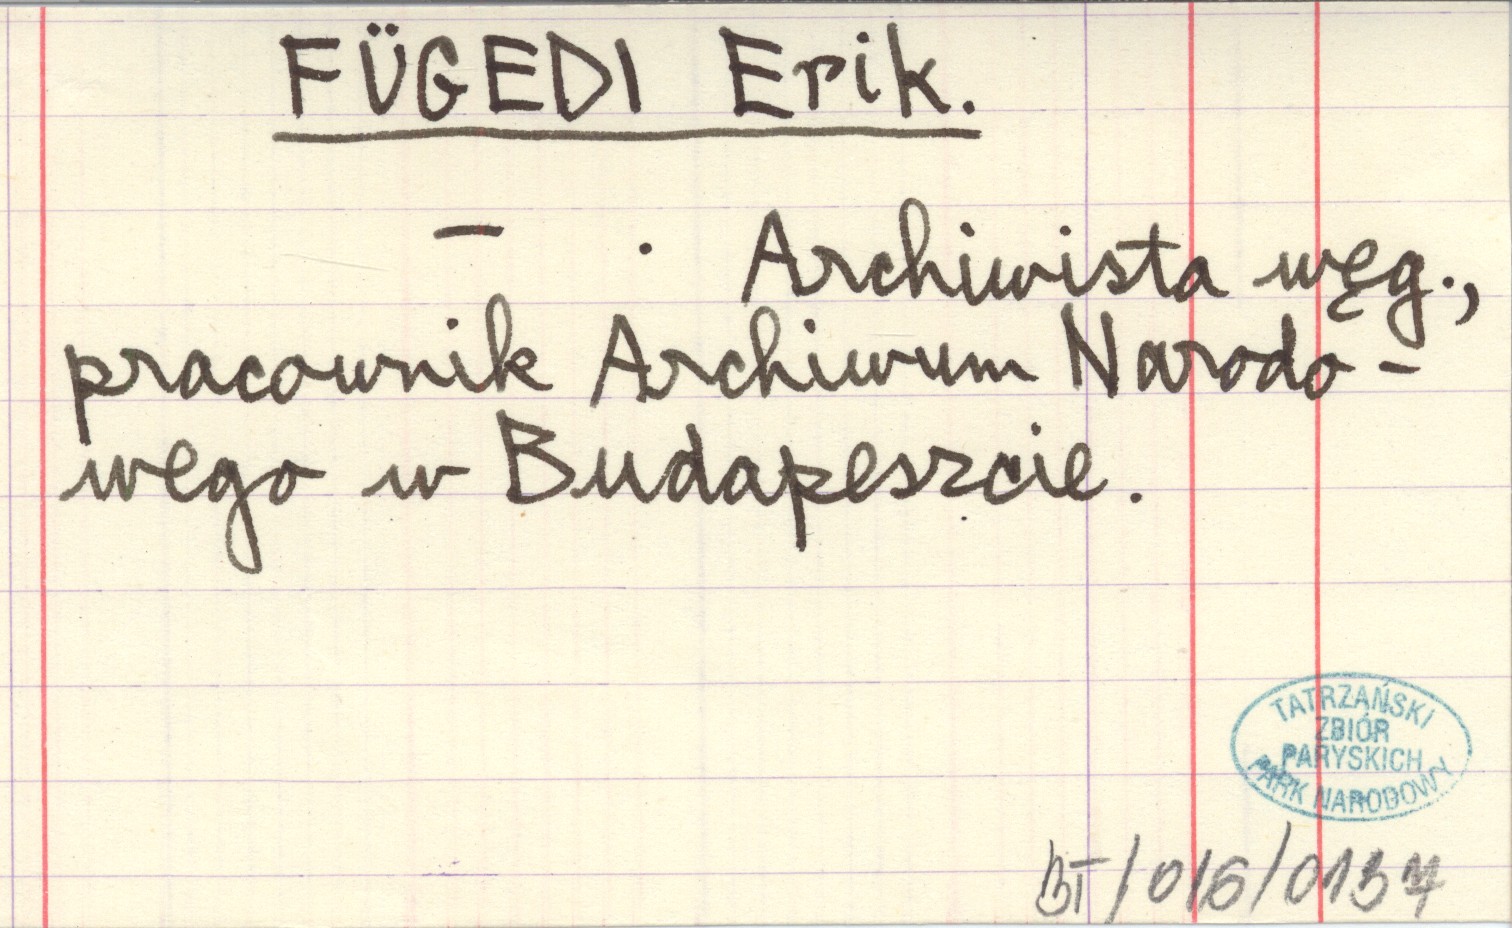 FÜGEDI Erik.
— . Archiwista węg.,
pracownik Archiwum Narodo-
wego w Budapeszcie.
TATRZAŃSKI
ZBIÓR
PARYSKICH
PARK NARODOWY
BT/016/0137